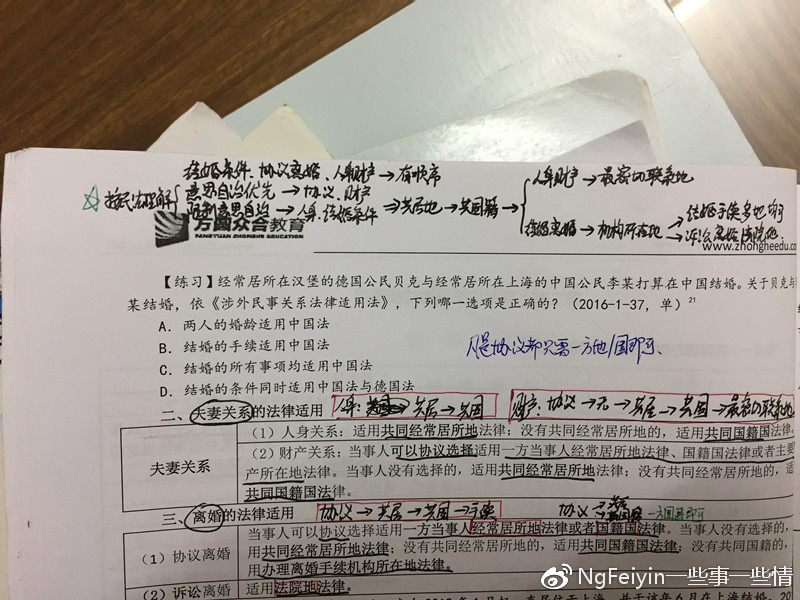 结婚条件、协议离婚、人身财产→有顺序
按民法理解
意思自治优先→协议、财产
限制意思自治→人身、结婚条件
⇒共居地→共国籍→
人身财产→最密切联系地
结婚离婚→机构所在地→
结婚手续多地均可
诉讼离婚法院地
万国众合教育
FANGYUAN ZHONGHE EDUCATION
www.zhongheedu.co
【练习】经常居所在汉堡的德国公民贝克与经常居所在上海的中国公民李某打算在中国结婚。关于贝克与
某结婚，依《涉外民事关系法律适用法》，下列哪一选项是正确的？（2016-1-37，单）21
A．两人的婚龄适用中国法
B．结婚的手续适用中国法
C．结婚的所有事项均适用中国法
D．结婚的条件同时适用中国法与德国法
但是协议都只需一方地/国即可.
二、夫妻关系的法律适用
人身：共居→共国
财产：协议→无→共居→共国→最密切联系地
夫妻关系
（1）人身关系：适用共同经常居所地法律；没有共同经常居所地的，适用共同国籍国法律。
（2）财产关系：当事人可以协议选择适用一方当事人经常居所地法律、国籍国法律或者主要
产所在地法律。当事人没有选择的，适用共同经常居所地法律；没有共同经常居所地的，适
共同国籍国法律。
三、离婚的法律适用
协议→共居→共国→手续
协议
一方国籍即可
（1）协议离婚
当事人可以协议选择适用一方当事人经常居所地法律或者国籍国法律。当事人没有选择的，
用共同经常居所地法律；没有共同经常居所地的，适用共同国籍国法律；没有共同国籍的，
用办理离婚手续机构所在地法律。
（2）诉讼离婚
适用法院地法律。
NgFeiyin一些事一些情